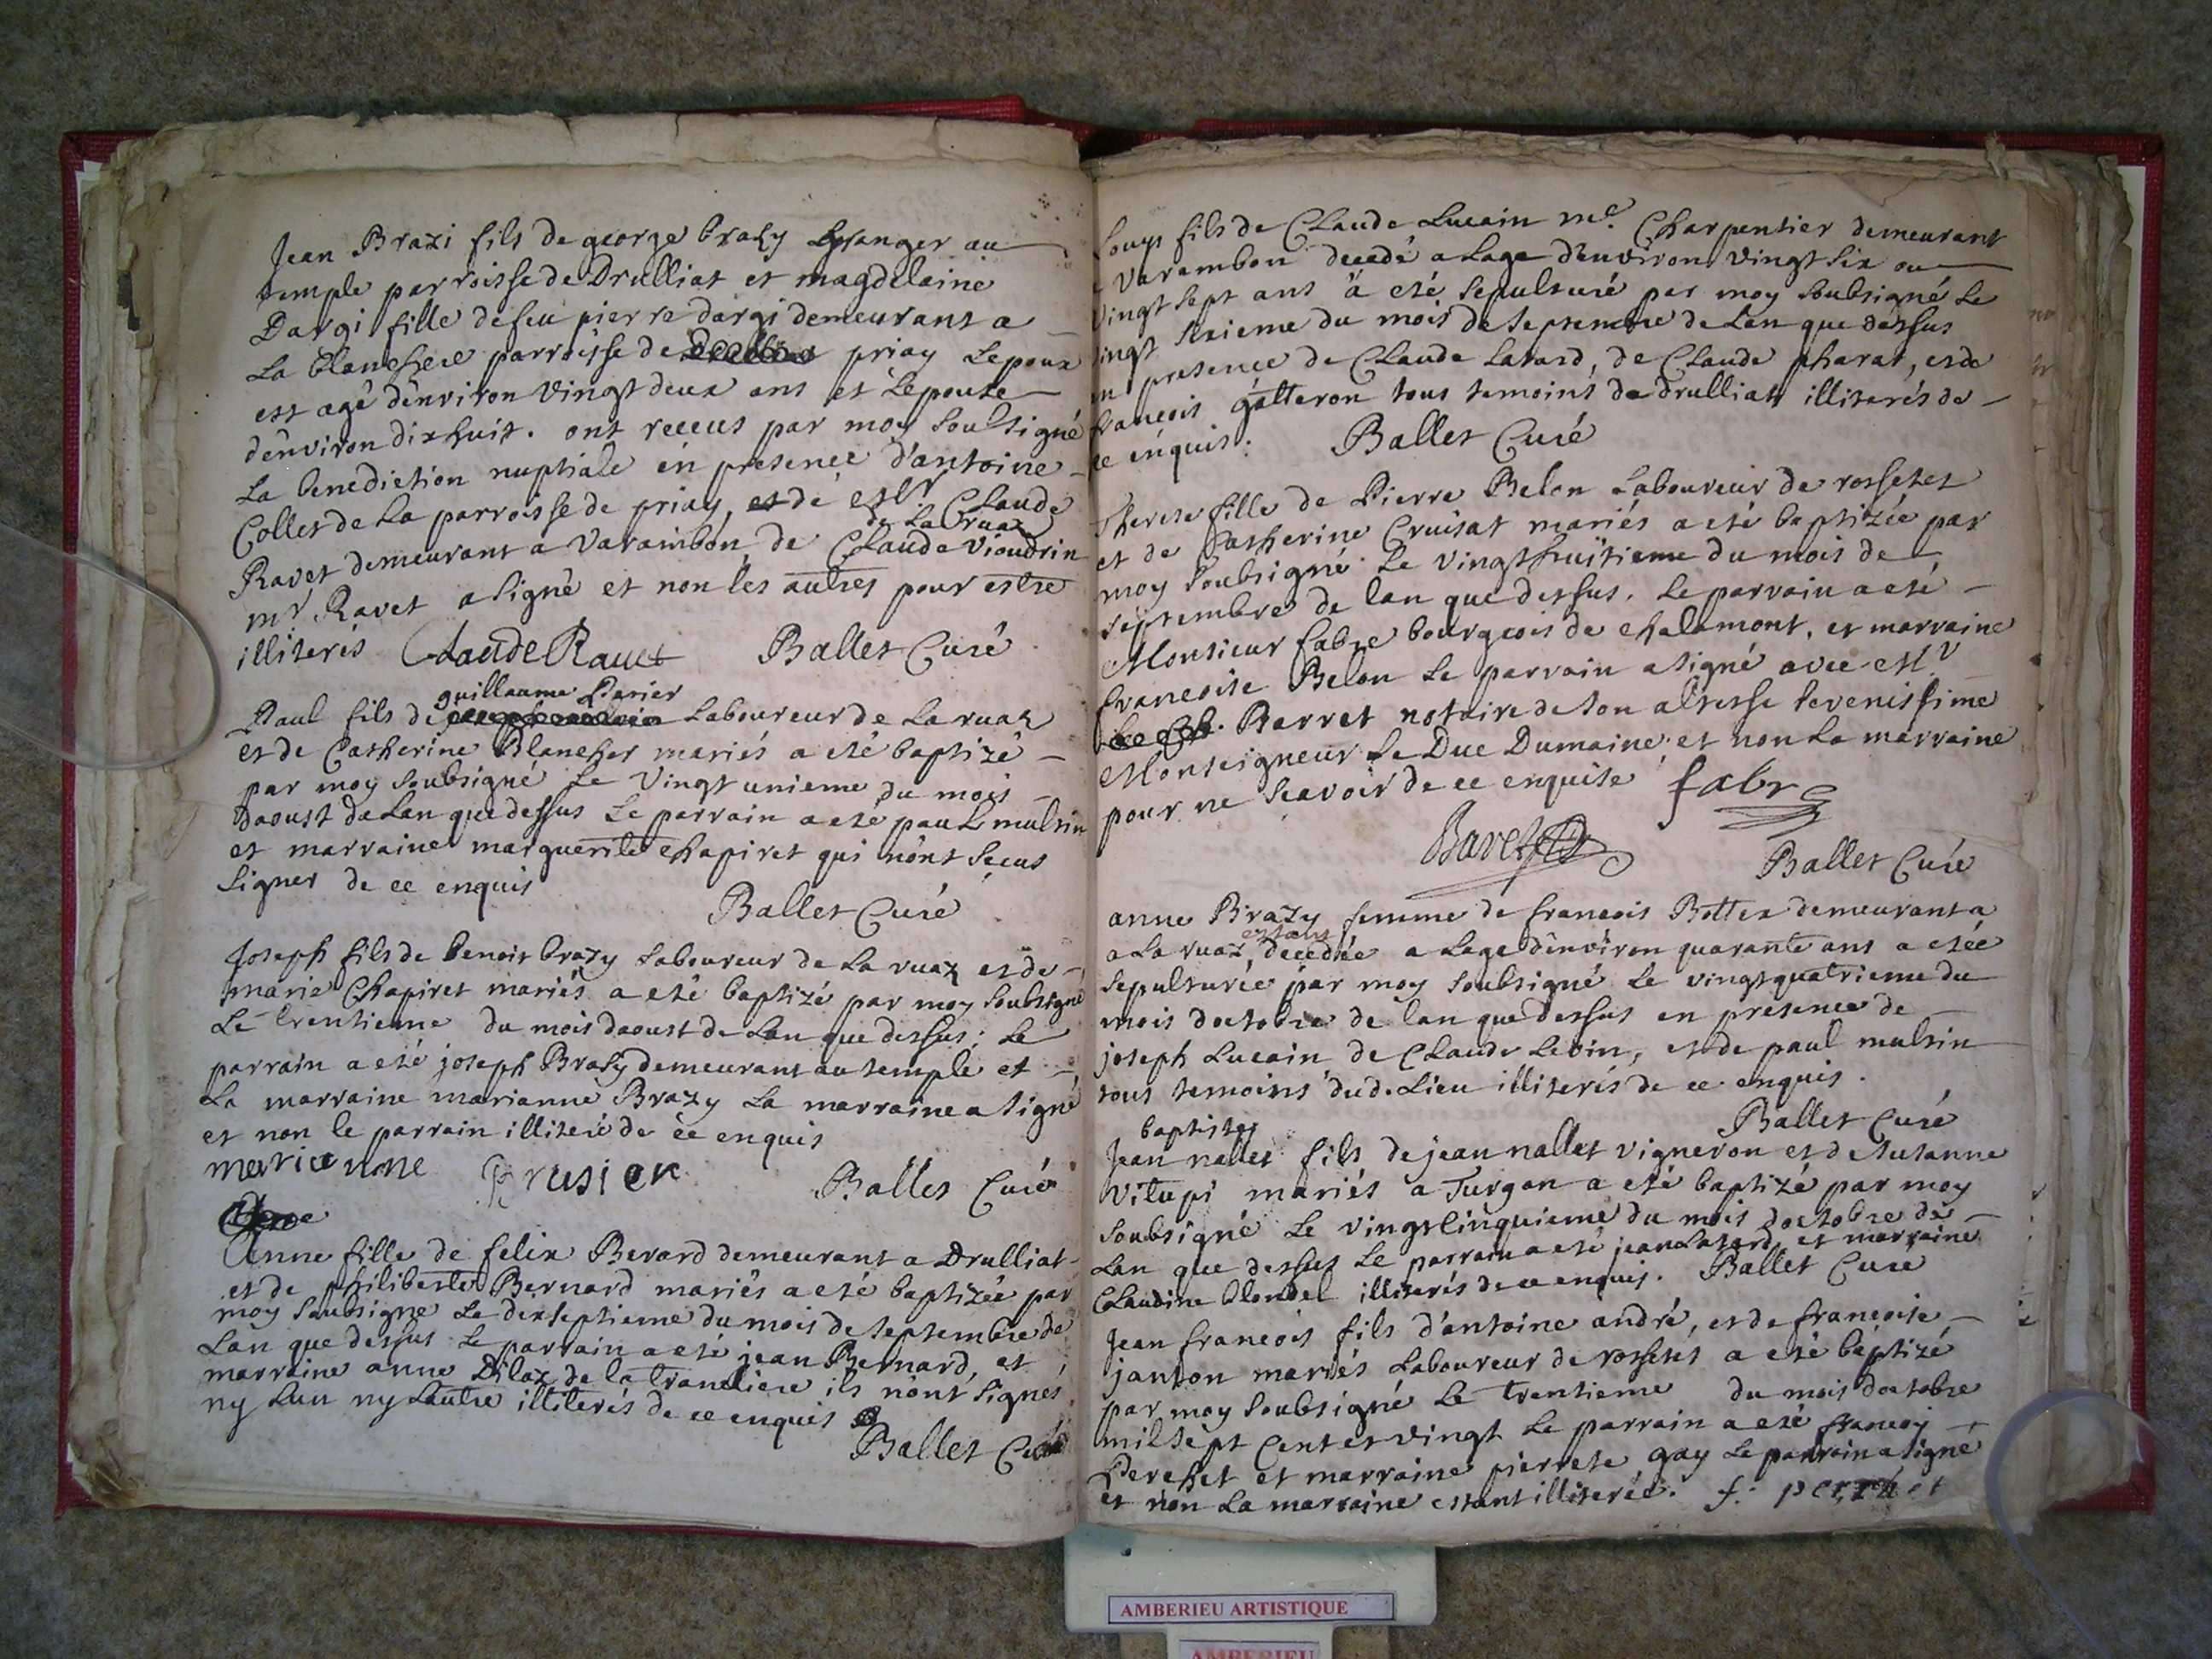 Jean Brazi fils de george brazy granger au
temple parroisse de Drulliat et magdelaine
Dargi fille de feu pierre dargi demeurant a
La blanchere parroisse de priay Lepoux
est agé denviron vingt deux ans et Lepouse
denviron dix huit. ont receus par moy soubsigné
La benediction nuptiale en presence d'antoine
Collet de La parroisse de priay, et de Mr. Claude
de La ruaz
Ravet demeurant a Varambon, de Claude Vioudrin
mr Ravet a signé et non les autres pour estre
illiterés Claude Rauet Ballet Curé
guillaume Parier
Paul fils de Laboureur de La ruaz
et de Catherine Blanchet mariés a eté baptizé
par moy soubsigné Le Vingt unieme du mois
daoust de Lan que dessus Le parrain a eté paul multin
et marraine marguerite chapiret qui nont sçeus
signer de ce enquis
Ballet Curé
Joseph fils de benoit brazy Laboureur de La ruaz et de
marie Chapiret mariés a eté baptizé par moy soubsigné
Le trentieme du mois daoust de Lan que dessus; Le
parrain a eté joseph Brazy demeurant au temple et
La marraine marianne Brazy La marraine a signé
et non le parrain illiteré de ce enquis
marianne Brusier Ballet Curé
Anne fille de felix Berard demeurant a Drulliat
et de philiberte Bernard mariés a eté baptizée par
moy soubsigne Le dixseptieme du mois de septembre de
Lan que dessus Le parrain a eté jean Bernard, et
marraine anne Dilaz de la trancliere ils nont signés
ny Lun ny Lautre illiterés de ce enquis
Ballet Curé
Louys fils de Claude Lucain me. Charpentier demeurant
a Varambon decedé a Lage denviron vingt six ou
vingt sept ans a eté sepulturé par moy soubsigné Le
vingt sixieme du mois de septembre de Lan que dessus
en presence de Claude Latard, de Claude pharat, et de
francois gatteron tous temoins de drulliat illiterés de
ce enquis. Ballet Curé
Therese fille de Pierre Belon Laboureur de rossetes
et de Catherine Cruisat mariés a eté baptizée par
moy soubsigné Le vingt huitieme du mois de
septembre de lan que dessus. Le parrain a eté
Monsieur fabre bourgeois de chalamont, et marraine
francoise Belon Le parrain a signé avec Mr
Barret notaire de son altesse serenissime
Monseigneur Le Duc Dumaine et non La marraine
pour ne scavoir de ce enquise fabre
Baret
Ballet Curé
anne Brazy femme de francois Botter demeurant a
estant
a La ruaz, decedée a Lage denviron quarante ans a etée
sepulturée par moy soubsigné Le vingt quatrieme du
mois doctobre de lan que dessus en presence de
joseph Lucain de Claude Levin, et de paul multin
tous temoins dud. Lieu illiterés de ce enquis.
Ballet Curé
baptiste
Jean nallet fils de jean nallet vigneron et de susanne
vitupi mariés a Turgon a eté baptizé par moy
soubsigné Le vingt cinquieme du mois doctobre de
Lan que dessus Le parrain a eté jean Latard, et marraine
Claudine blondel illiterés de ce enquis. Ballet Cure
Jean francois fils d'antoine andré, et de francoise
janton mariés Laboureur de rossetes a eté baptizé
par moy soubsigné Le trentieme du mois doctobre
mil sept Cent et vingt Le parrain a eté francoy
Perchet et marraine pierrete gay Le parrain a signé
et non La marraine estant illiterée. f. perchet
AMBERIEU ARTISTIQUE
AMBERIEU